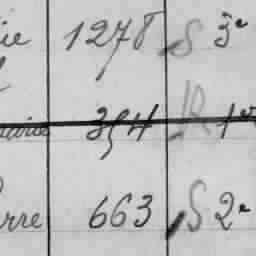 ie 1278 S 3e
aires 354 R 1er
erre 663 S 2e